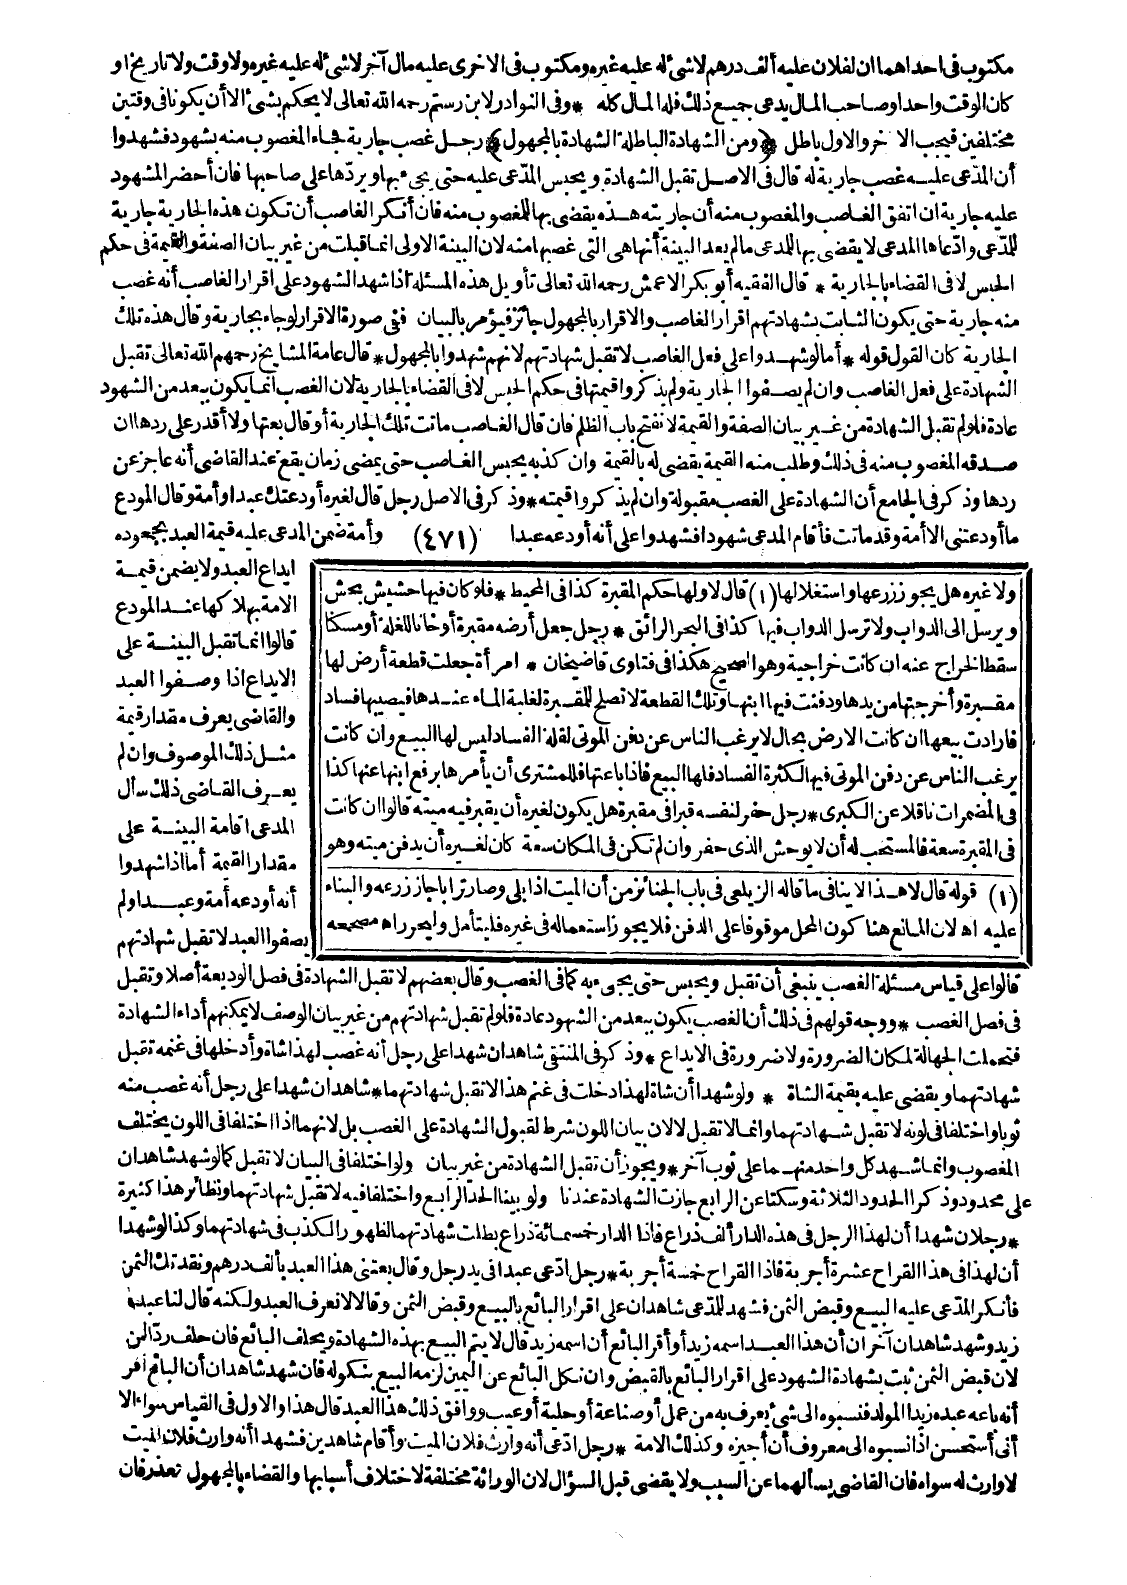 مكتوب فى احداهما ان لفلان عليه ألف درهم لاشئ له عليه غيره ومكتوب فى الاخرى عليه مال آخر لاشئ له عليه غيره ولا وقت ولا تاريخ او
كان الوقت واحدا وصاحب المال يدعى جميع ذلك فله المال كله * وفى النوادر لابن رستم رحمه الله تعالى لا يحكم بشئ الا أن يكونا فى وقتين
مختلفين فيجب الاخر والاول باطل ﴿ومن الشهادة الباطلة الشهادة بالمجهول﴾ رجل غصب جارية فجاء المغصوب منه بشهود فشهدوا
أن المدّعى عليه غصب جارية له قال فى الاصل تقبل الشهادة ويحبس المدّعى عليه حتى يجىء بها ويردّها على صاحبها فان أحضر المشهود
عليه جارية ان اتفق الغاصب والمغصوب منه أن جاريته هذه يقضى بها للمغصوب منه فان أنكر الغاصب أن تكون هذه الجارية جارية
للمدّعى وادّعاها المدعى لا يقضى بها للمدعى مالم يعد البينة أنها هى التى غصبها منه لان البينة الاولى انما قبلت من غير بيان الصفة والقيمة فى حكم
الحبس لا فى القضاء بالجارية * قال الفقيه أبو بكر الاعمش رحمه الله تعالى تأويل هذه المسئلة اذا شهد الشهود على اقرار الغاصب أنه غصب
منه جارية حتى يكون الثابت بشهادتهم اقرار الغاصب والاقرار بالمجهول جائز فيؤمر بالبيان ففى صورة الاقرار لو جاء بجارية وقال هذه تلك
الجارية كان القول قوله * أما لو شهدوا على فعل الغاصب لا تقبل شهادتهم لانهم شهدوا بالمجهول * قال عامة المشايخ رحمهم الله تعالى تقبل
الشهادة على فعل الغاصب وان لم يصفوا الجارية ولم يذكروا قيمتها فى حكم الحبس لا فى القضاء بالجارية لان الغصب انما يكون ببعد من الشهود
عادة فلو لم تقبل الشهادة من غير بيان الصفة والقيمة لانفتح باب الظلم فان قال الغاصب ماتت تلك الجارية أو قال بعتها ولا أقدر على ردها ان
صدقه المغصوب منه فى ذلك وطلب منه القيمة يقضى له بالقيمة وان كذبه يحبس الغاصب حتى يمضى زمان يقع عند القاضى أنه عاجز عن
ردها وذكر فى الجامع أن الشهادة على الغصب مقبولة وان لم يذكروا قيمته * وذكر فى الاصل رجل قال لغيره أودعتك عبدا وأمة وقال المودع
ما أودعتنى الا أمة وقد ماتت فأقام المدعى شهودا فشهدوا على أنه أودعه عبدا (٤٧١) وأمة ضمن المدعى عليه قيمة العبد بجحوده
ايداع العبد ولا يضمن قيمة
الامة بهلاكها عند المودع
قالوا انما تقبل البينة على
الايداع اذا وصفوا العبد
والقاضى يعرف مقدار قيمة
مثل ذلك الموصوف وان لم
يعرف القاضى ذلك سأل
المدعى اقامة البينة على
مقدار القيمة أما اذا شهدوا
أنه أودعه أمة وعبدا ولم
يصفوا العبد لا تقبل شهادتهم
ولا غيره هل يجوز زرعها واستغلالها (١) قال لا ولها حكم المقبرة كذا فى المحيط * فلو كان فيها حشيش يحش
ويرسل الى الدواب ولا ترسل الدواب فيها كذا فى البحر الرائق * رجل جعل أرضه مقبرة أو خانا للغلة أو مسكنا
سقط الخراج عنه ان كانت خراجية وهو الصحيح هكذا فى فتاوى قاضيخان * امرأة جعلت قطعة أرض لها
مقبرة وأخرجتها من يدها ودفنت فيها ابنها وتلك القطعة لا تصلح للمقبرة لغلبة الماء عندها فيصيبها فساد
فارادت بيعها ان كانت الارض بحال لا يرغب الناس عن دفن الموتى لقلة الفساد ليس لها البيع وان كانت
يرغب الناس عن دفن الموتى فيها لكثرة الفساد فلها البيع فاذا باعتها فللمشترى أن يأمرها برفع ابنها عنها كذا
فى المضمرات ناقلا عن الكبرى * رجل حفر لنفسه قبرا فى مقبرة هل يكون لغيره أن يقبر فيه ميته قالوا ان كانت
فى المقبرة سعة فالمستحب له أن لا يوحش الذى حفر وان لم تكن فى المكان سعة كان لغيره أن يدفن ميته وهو
(١) قوله قال لا هذا لا ينافى ما قاله الزيلعى فى باب الجنائز من أن الميت اذا بلى وصار ترابا جاز زرعه والبناء
عليه اه لان المانع هنا كون المحل موقوفا على الدفن فلا يجوز استعماله فى غيره فليتأمل وليحرر اه مصححه
قالوا على قياس مسئلة الغصب ينبغى أن تقبل ويحبس حتى يجىء به كما فى الغصب وقال بعضهم لا تقبل الشهادة فى فصل الوديعة أصلا وتقبل
فى فصل الغصب * ووجه قولهم فى ذلك أن الغصب يكون ببعد من الشهود عادة فلو لم تقبل شهادتهم من غير بيان الوصف لا يمكنهم أداء الشهادة
فتحملت الجهالة لمكان الضرورة ولا ضرورة فى الايداع * وذكر فى المنتقى شاهدان شهدا على رجل أنه غصب لهذا شاة وأدخلها فى غنمه تقبل
شهادتهما ويقضى عليه بقيمة الشاة * ولو شهدا أن شاة لهذا دخلت فى غنم هذا لا تقبل شهادتهما * شاهدان شهدا على رجل أنه غصب منه
ثوبا واختلفا فى لونه لا تقبل شهادتهما وانما لا تقبل لا لان بيان اللون شرط لقبول الشهادة على الغصب بل لانهما اذا اختلفا فى اللون يختلف
المغصوب وانما شهد كل واحد منهما على ثوب آخر * ويجوز أن تقبل الشهادة من غير بيان ولو اختلفا فى البيان لا تقبل كما لو شهد شاهدان
على محدود وذكرا الحدود الثلاثة وسكتا عن الرابع جازت الشهادة عندنا ولو بينا الحد الرابع واختلفا فيه لا تقبل شهادتهما ونظائر هذا كثيرة
* رجلان شهدا أن لهذا الرجل فى هذه الدار ألف ذراع فاذا الدار خمسمائة ذراع بطلت شهادتهما لظهور الكذب فى شهادتهما وكذا لو شهدا
أن لهذا فى هذا القراح عشرة أجربة فاذا القراح خمسة أجربة * رجل ادّعى عبدا فى يد رجل وقال بعتنى هذا العبد بألف درهم ونقدتك الثمن
فأنكر المدّعى عليه البيع وقبض الثمن فشهد للمدّعى شاهدان على اقرار البائع بالبيع وقبض الثمن وقالا لا نعرف العبد ولكنه قال لنا عبدى
زيد وشهد شاهدان آخران أن هذا العبد اسمه زيد أو أقر البائع أن اسمه زيد قال لا يتم البيع بهذه الشهادة ويحلف البائع فان حلف ردّ الثمن
لان قبض الثمن ثبت بشهادة الشهود على اقرار البائع بالقبض وان نكل البائع عن اليمين لزمه البيع بنكوله فان شهد شاهدان أن البائع أقر
أنه باعه عبده زيدا المولد فنسبوه الى شئ يعرف به من عمل أو صناعة أو حلية أو عيب ووافق ذلك هذا العبد قال هذا والاول فى القياس سواء الا
أنى أستحسن اذا نسبوه الى معروف أن أجيزه وكذلك الامة * رجل ادّعى أنه وارث فلان الميت وأقام شاهدين فشهدا أنه وارث فلان الميت
لا وارث له سواه فان القاضى يسألهما عن السبب ولا يقضى قبل السؤال لان الوراثة مختلفة لاختلاف أسبابها والقضاء بالمجهول تعذر فان